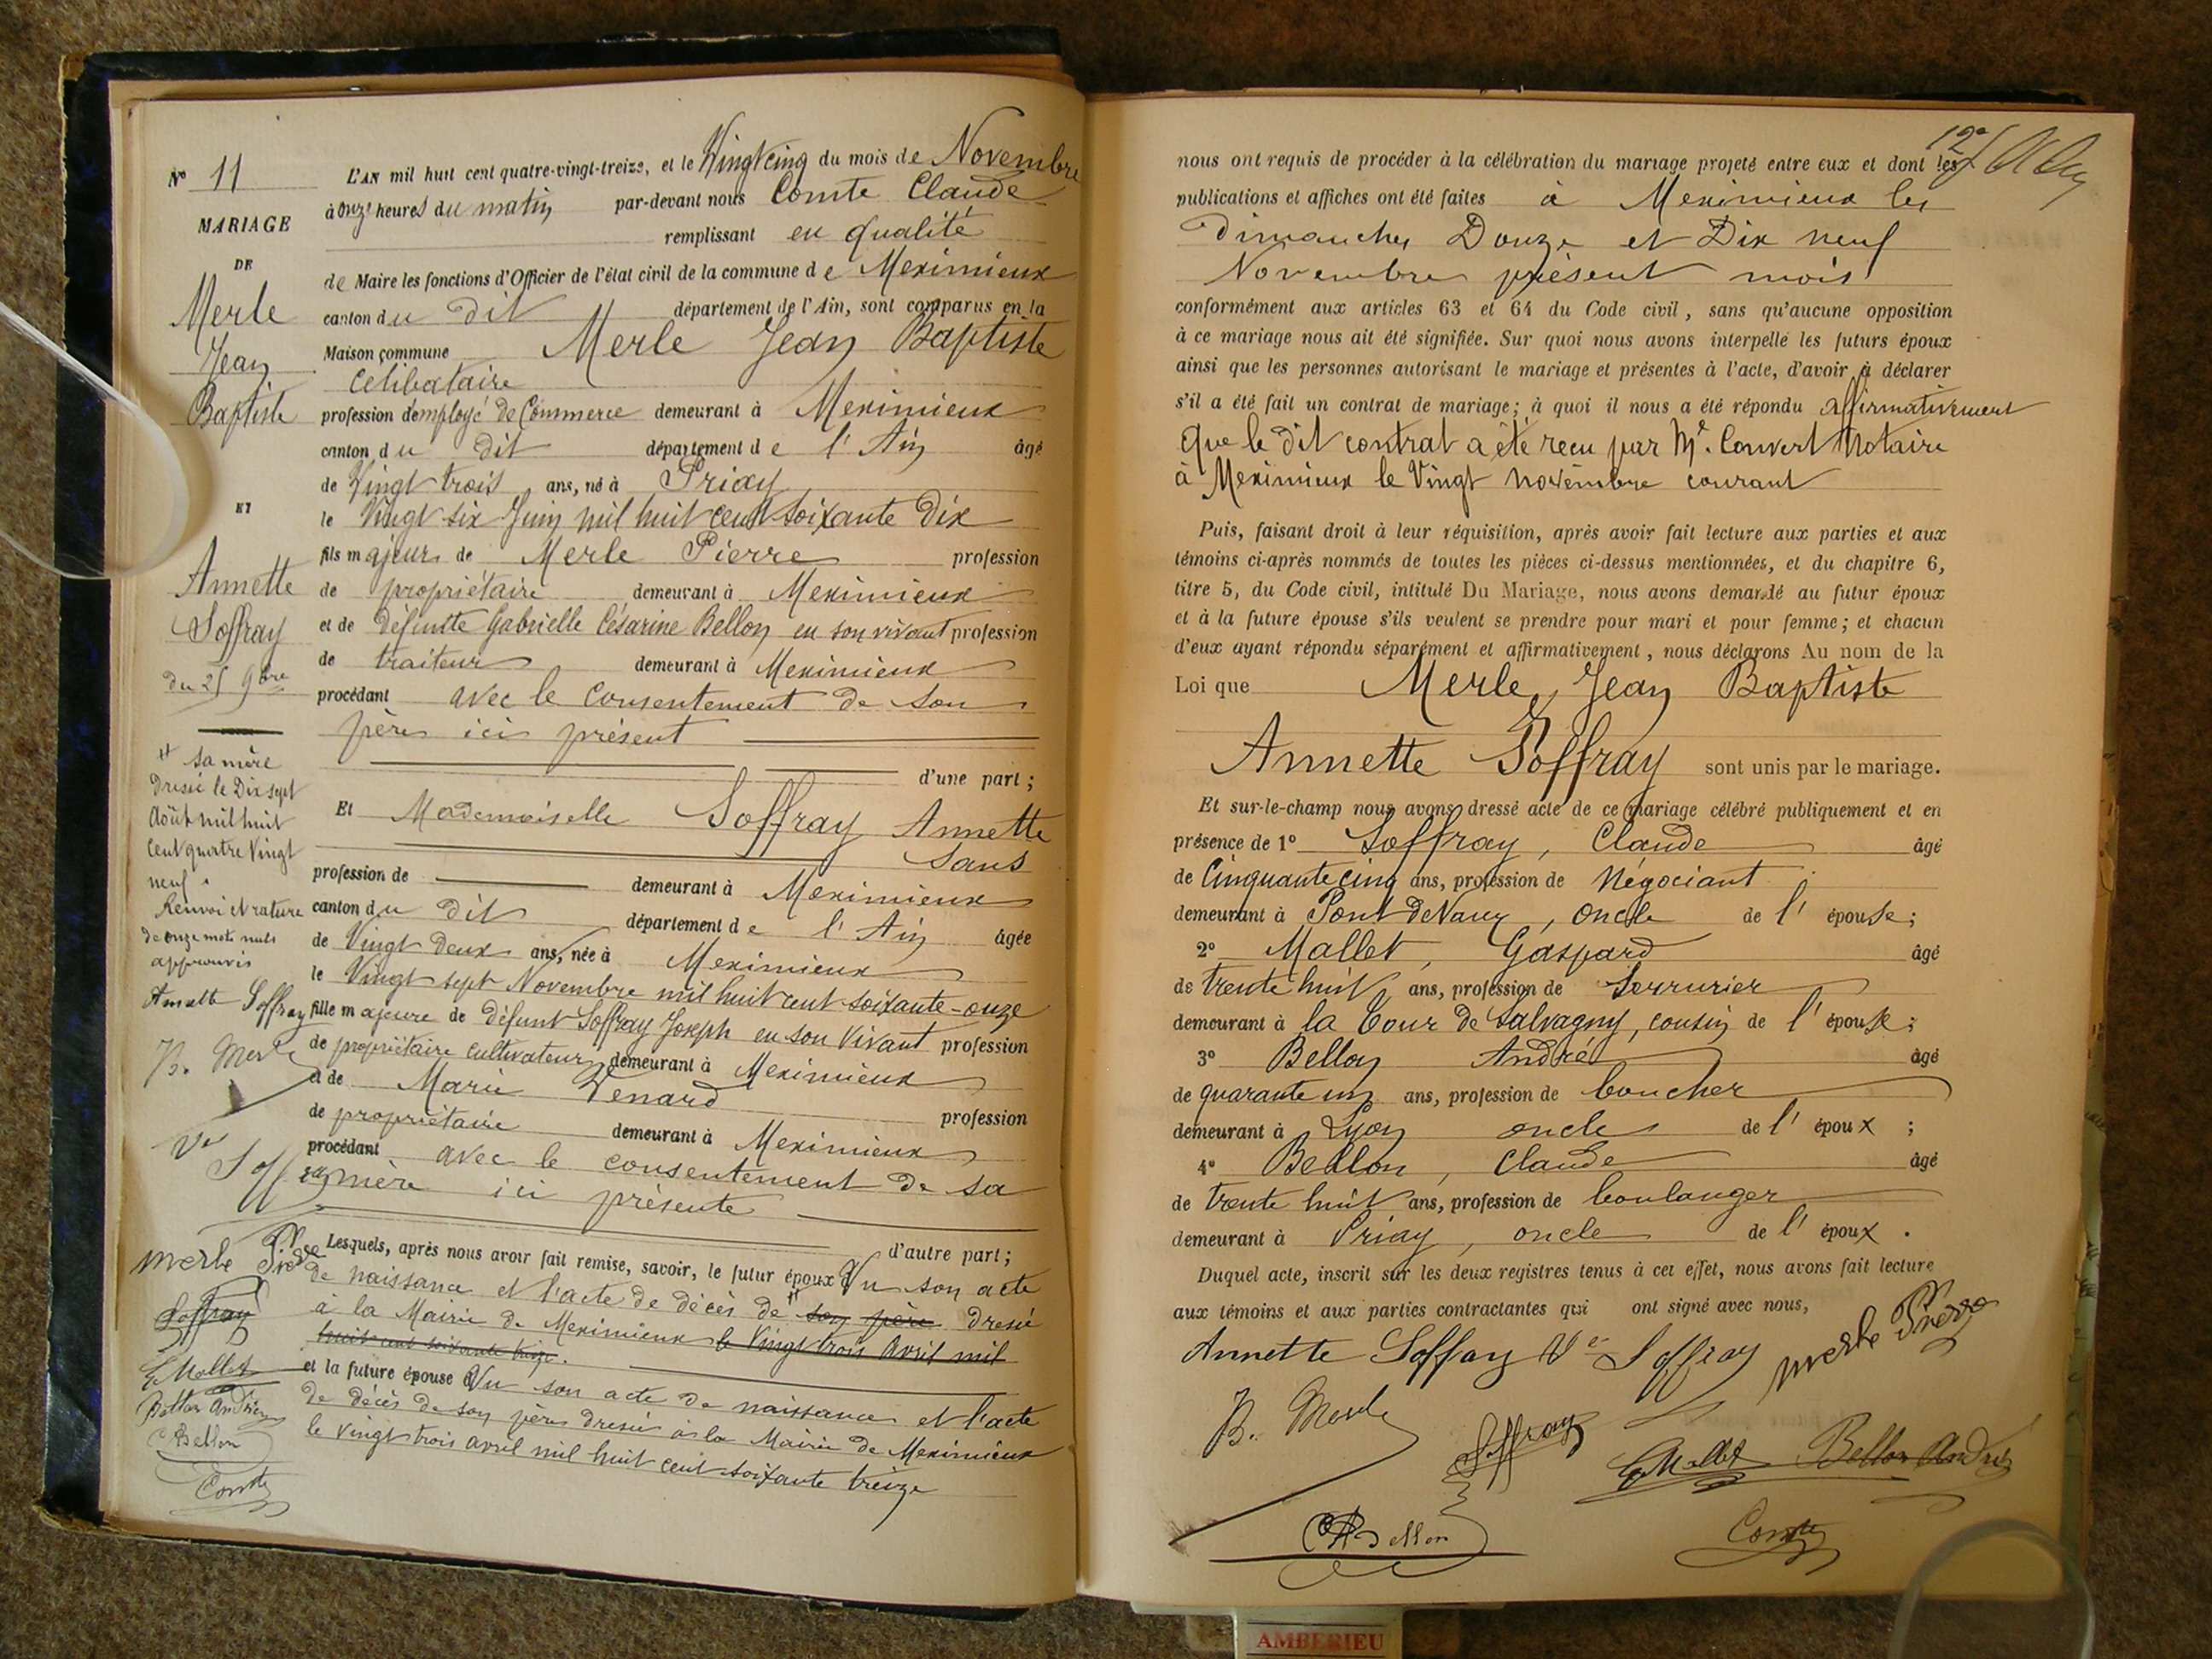 Nº 11
MARIAGE
DE
Merle
Jean
Baptiste
ET
Annette
Soffray
du 25 9bre
sa mère
dressé le Dix sept
Août mil huit
cent quatre vingt
neuf.
Renvoi et rature
de onze mots nuls
approuvés
Annette Soffray
B. Merle
Ve
Soffray
merle Pierre
Soffray
G Mallet
Bellon André
C Bellon
Comte
L'AN mil huit cent quatre-vingt-treize, et le Vingt cinq du mois de Novembre
à onze heures du matin par-devant nous Comte Claude
remplissant en qualité
de Maire les fonctions d'Officier de l'état civil de la commune de Meximieux
canton du dit département de l'Ain, sont comparus en la
Maison commune Merle Jean Baptiste
Célibataire
profession d'employé de Commerce demeurant à Meximieux
canton du dit département de l'Ain âgé
de Vingt trois ans, né à Priay
le Vingt six Juin mil huit cent soixante dix
fils majeur de Merle Pierre profession
de propriétaire demeurant à Meximieux
et de défunte Gabrielle Césarine Bellon en son vivant profession
de traiteur demeurant à Meximieux
procédant avec le consentement de son
père ici présent
d'une part;
Et Mademoiselle Soffray Annette
sans
profession de demeurant à Meximieux
canton du dit département de l'Ain âgée
de Vingt deux ans, née à Meximieux
le Vingt sept Novembre mil huit cent soixante-onze
fille majeure de défunt Soffray Joseph en son vivant profession
de propriétaire cultivateur demeurant à Meximieux
et de Marie Venard profession
de propriétaire demeurant à Meximieux
procédant avec le consentement de sa
mère ici présente
d'autre part;
Lesquels, après nous avoir fait remise, savoir, le futur époux Vu son acte
de naissance et l'acte de décès de son père dressé
à la Mairie de Meximieux le Vingt trois Avril mil
huit cent soixante treize.
et la future épouse Vu son acte de naissance et l'acte
de décès de son père dressé à la Mairie de Meximieux
le vingt trois avril mil huit cent soixante treize
12e
nous ont requis de procéder à la célébration du mariage projeté entre eux et dont les
publications et affiches ont été faites à Meximieux les
Dimanches Douze et Dix neuf
Novembre présent mois
conformément aux articles 63 et 64 du Code civil, sans qu'aucune opposition
à ce mariage nous ait été signifiée. Sur quoi nous avons interpellé les futurs époux
ainsi que les personnes autorisant le mariage et présentes à l'acte, d'avoir à déclarer
s'il a été fait un contrat de mariage; à quoi il nous a été répondu affirmativement
que le dit contrat a été reçu par Me. Convert Notaire
à Meximieux le Vingt novembre courant
Puis, faisant droit à leur réquisition, après avoir fait lecture aux parties et aux
témoins ci-après nommés de toutes les pièces ci-dessus mentionnées, et du chapitre 6,
titre 5, du Code civil, intitulé Du Mariage, nous avons demandé au futur époux
et à la future épouse s'ils veulent se prendre pour mari et pour femme; et chacun
d'eux ayant répondu séparément et affirmativement, nous déclarons Au nom de la
Loi que Merle, Jean Baptiste
&
Annette Soffray sont unis par le mariage.
Et sur-le-champ nous avons dressé acte de ce mariage célébré publiquement et en
présence de 1º Soffray, Claude âgé
de Cinquante cinq ans, profession de Négociant
demeurant à Pont de Vaux, oncle de l'épouse;
2º Mallet, Gaspard âgé
de trente huit ans, profession de Serrurier
demeurant à la Tour de Salvagny, cousin de l'épouse;
3º Bellon André âgé
de quarante un ans, profession de boucher
demeurant à Lyon oncle de l'époux;
4º Bellon, Claude âgé
de trente huit ans, profession de boulanger
demeurant à Priay, oncle de l'époux.
Duquel acte, inscrit sur les deux registres tenus à cet effet, nous avons fait lecture
aux témoins et aux parties contractantes qui ont signé avec nous,
Annette Soffray Ve Soffray merle Pierre
B. Merle
Soffray
G Mallet Bellon André
C Bellon
Comte
AMBERIEU